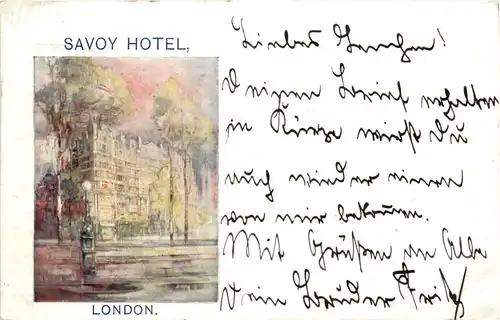 SAVOY HOTEL,
LONDON.
Liebes !
Deinen Brief erhalten
in Kürze wirst Du
auch wieder einen
von mir bekommen.
Mit Grüßen an Alle
Dein Bruder Fritz